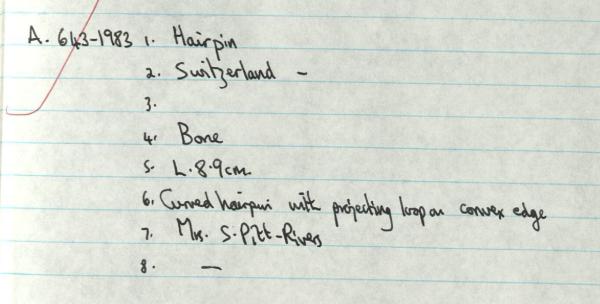 A. 643-1983 1. Hairpin
2. Switzerland -
3.
4. Bone
5. L. 8.9cm
6. Curved hairpin with projecting loop on convex edge
7. Mrs. S. Pitt-Rivers
8. —